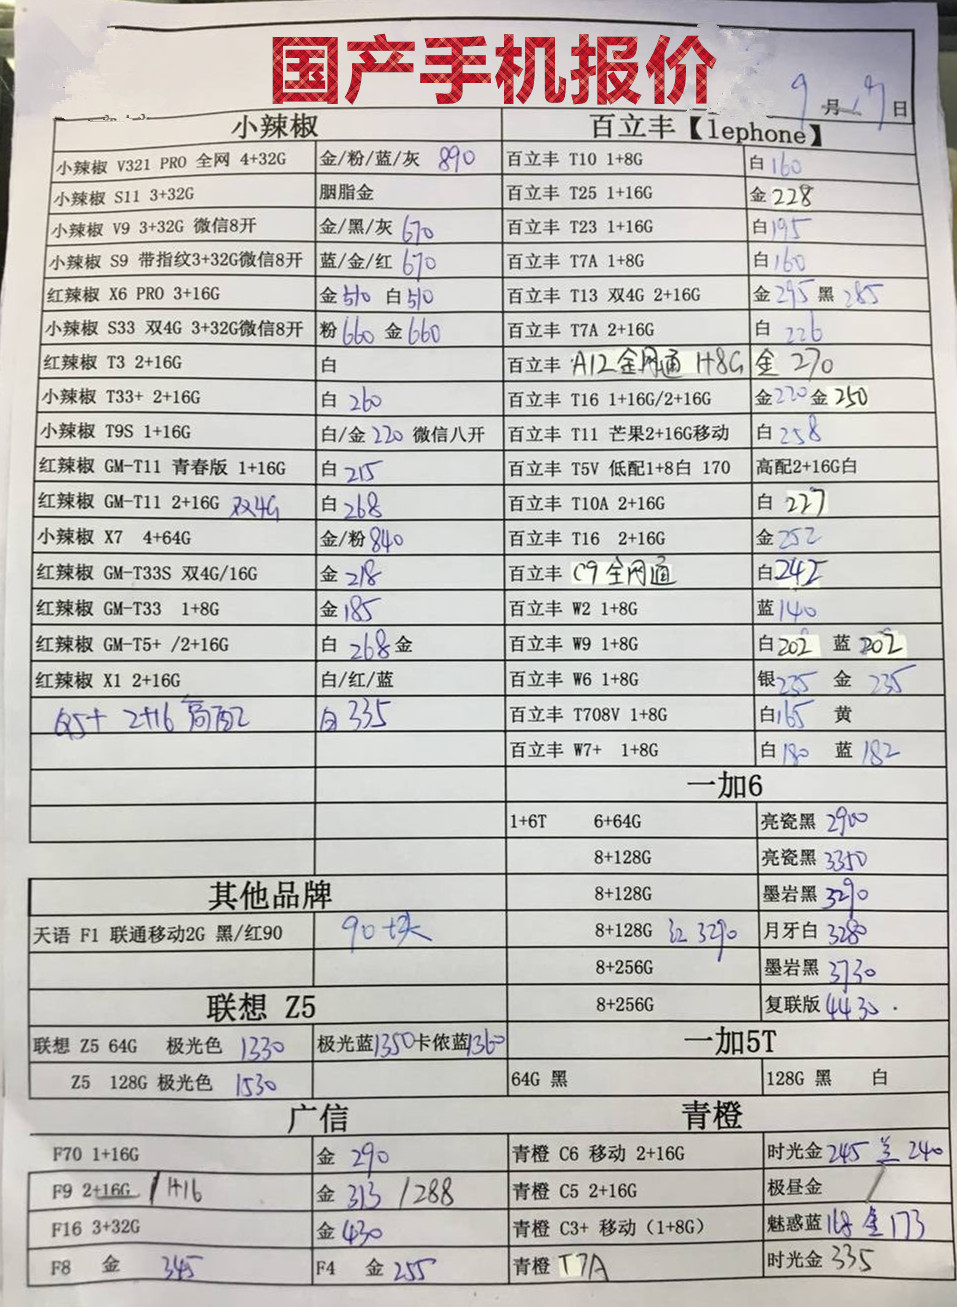 国产手机报价
9月19日
小辣椒
小辣椒 V321 PRO 全网 4+32G 金/粉/蓝/灰 890
小辣椒 S11 3+32G 胭脂金
小辣椒 V9 3+32G 微信8开 金/黑/灰 670
小辣椒 S9 带指纹3+32G微信8开 蓝/金/红 670
红辣椒 X6 PRO 3+16G 金510 白510
小辣椒 S33 双4G 3+32G微信8开 粉660 金660
红辣椒 T3 2+16G 白
小辣椒 T33+ 2+16G 白 260
小辣椒 T9S 1+16G 白/金 220 微信八开
红辣椒 GM-T11 青春版 1+16G 白 215
红辣椒 GM-T11 2+16G 双4G 白 268
小辣椒 X7 4+64G 金/粉 840
红辣椒 GM-T33S 双4G/16G 金 218
红辣椒 GM-T33 1+8G 金 185
红辣椒 GM-T5+ /2+16G 白 268 金
红辣椒 X1 2+16G 白/红/蓝
Q5+ 2+16 高配 白 335
其他品牌
天语 F1 联通移动2G 黑/红90 90块
联想 Z5
联想 Z5 64G 极光色 1330 极光蓝1350卡侬蓝1360
Z5 128G 极光色 1530
广信
F70 1+16G 金 290
F9 2+16G / 1+16 金 313 /288
F16 3+32G 金 430
F8 金 345 F4 金 255
百立丰【lephone】
百立丰 T10 1+8G 白160
百立丰 T25 1+16G 金 228
百立丰 T23 1+16G 白195
百立丰 T7A 1+8G 白160
百立丰 T13 双4G 2+16G 金295 黑 285
百立丰 T7A 2+16G 白 226
百立丰 A12全网通 1+8G 金 270
百立丰 T16 1+16G/2+16G 金220 金 250
百立丰 T11 芒果2+16G移动 白 258
百立丰 T5V 低配1+8白 170 高配2+16G白
百立丰 T10A 2+16G 白 227
百立丰 T16 2+16G 金252
百立丰 C9全网通 白242
百立丰 W2 1+8G 蓝140
百立丰 W9 1+8G 白202 蓝 202
百立丰 W6 1+8G 银235 金 235
百立丰 T708V 1+8G 白165 黄
百立丰 W7+ 1+8G 白180 蓝 182
一加6
1+6T 6+64G 亮瓷黑 2900
8+128G 亮瓷黑 3350
8+128G 墨岩黑 3290
8+128G 红 3290 月牙白 3280
8+256G 墨岩黑 3730
8+256G 复联版 4430
一加5T
64G 黑 128G 黑 白
青橙
青橙 C6 移动 2+16G 时光金 245 兰 240
青橙 C5 2+16G 极昼金
青橙 C3+ 移动（1+8G） 魅惑蓝168 金 173
青橙 T7A 时光金 335